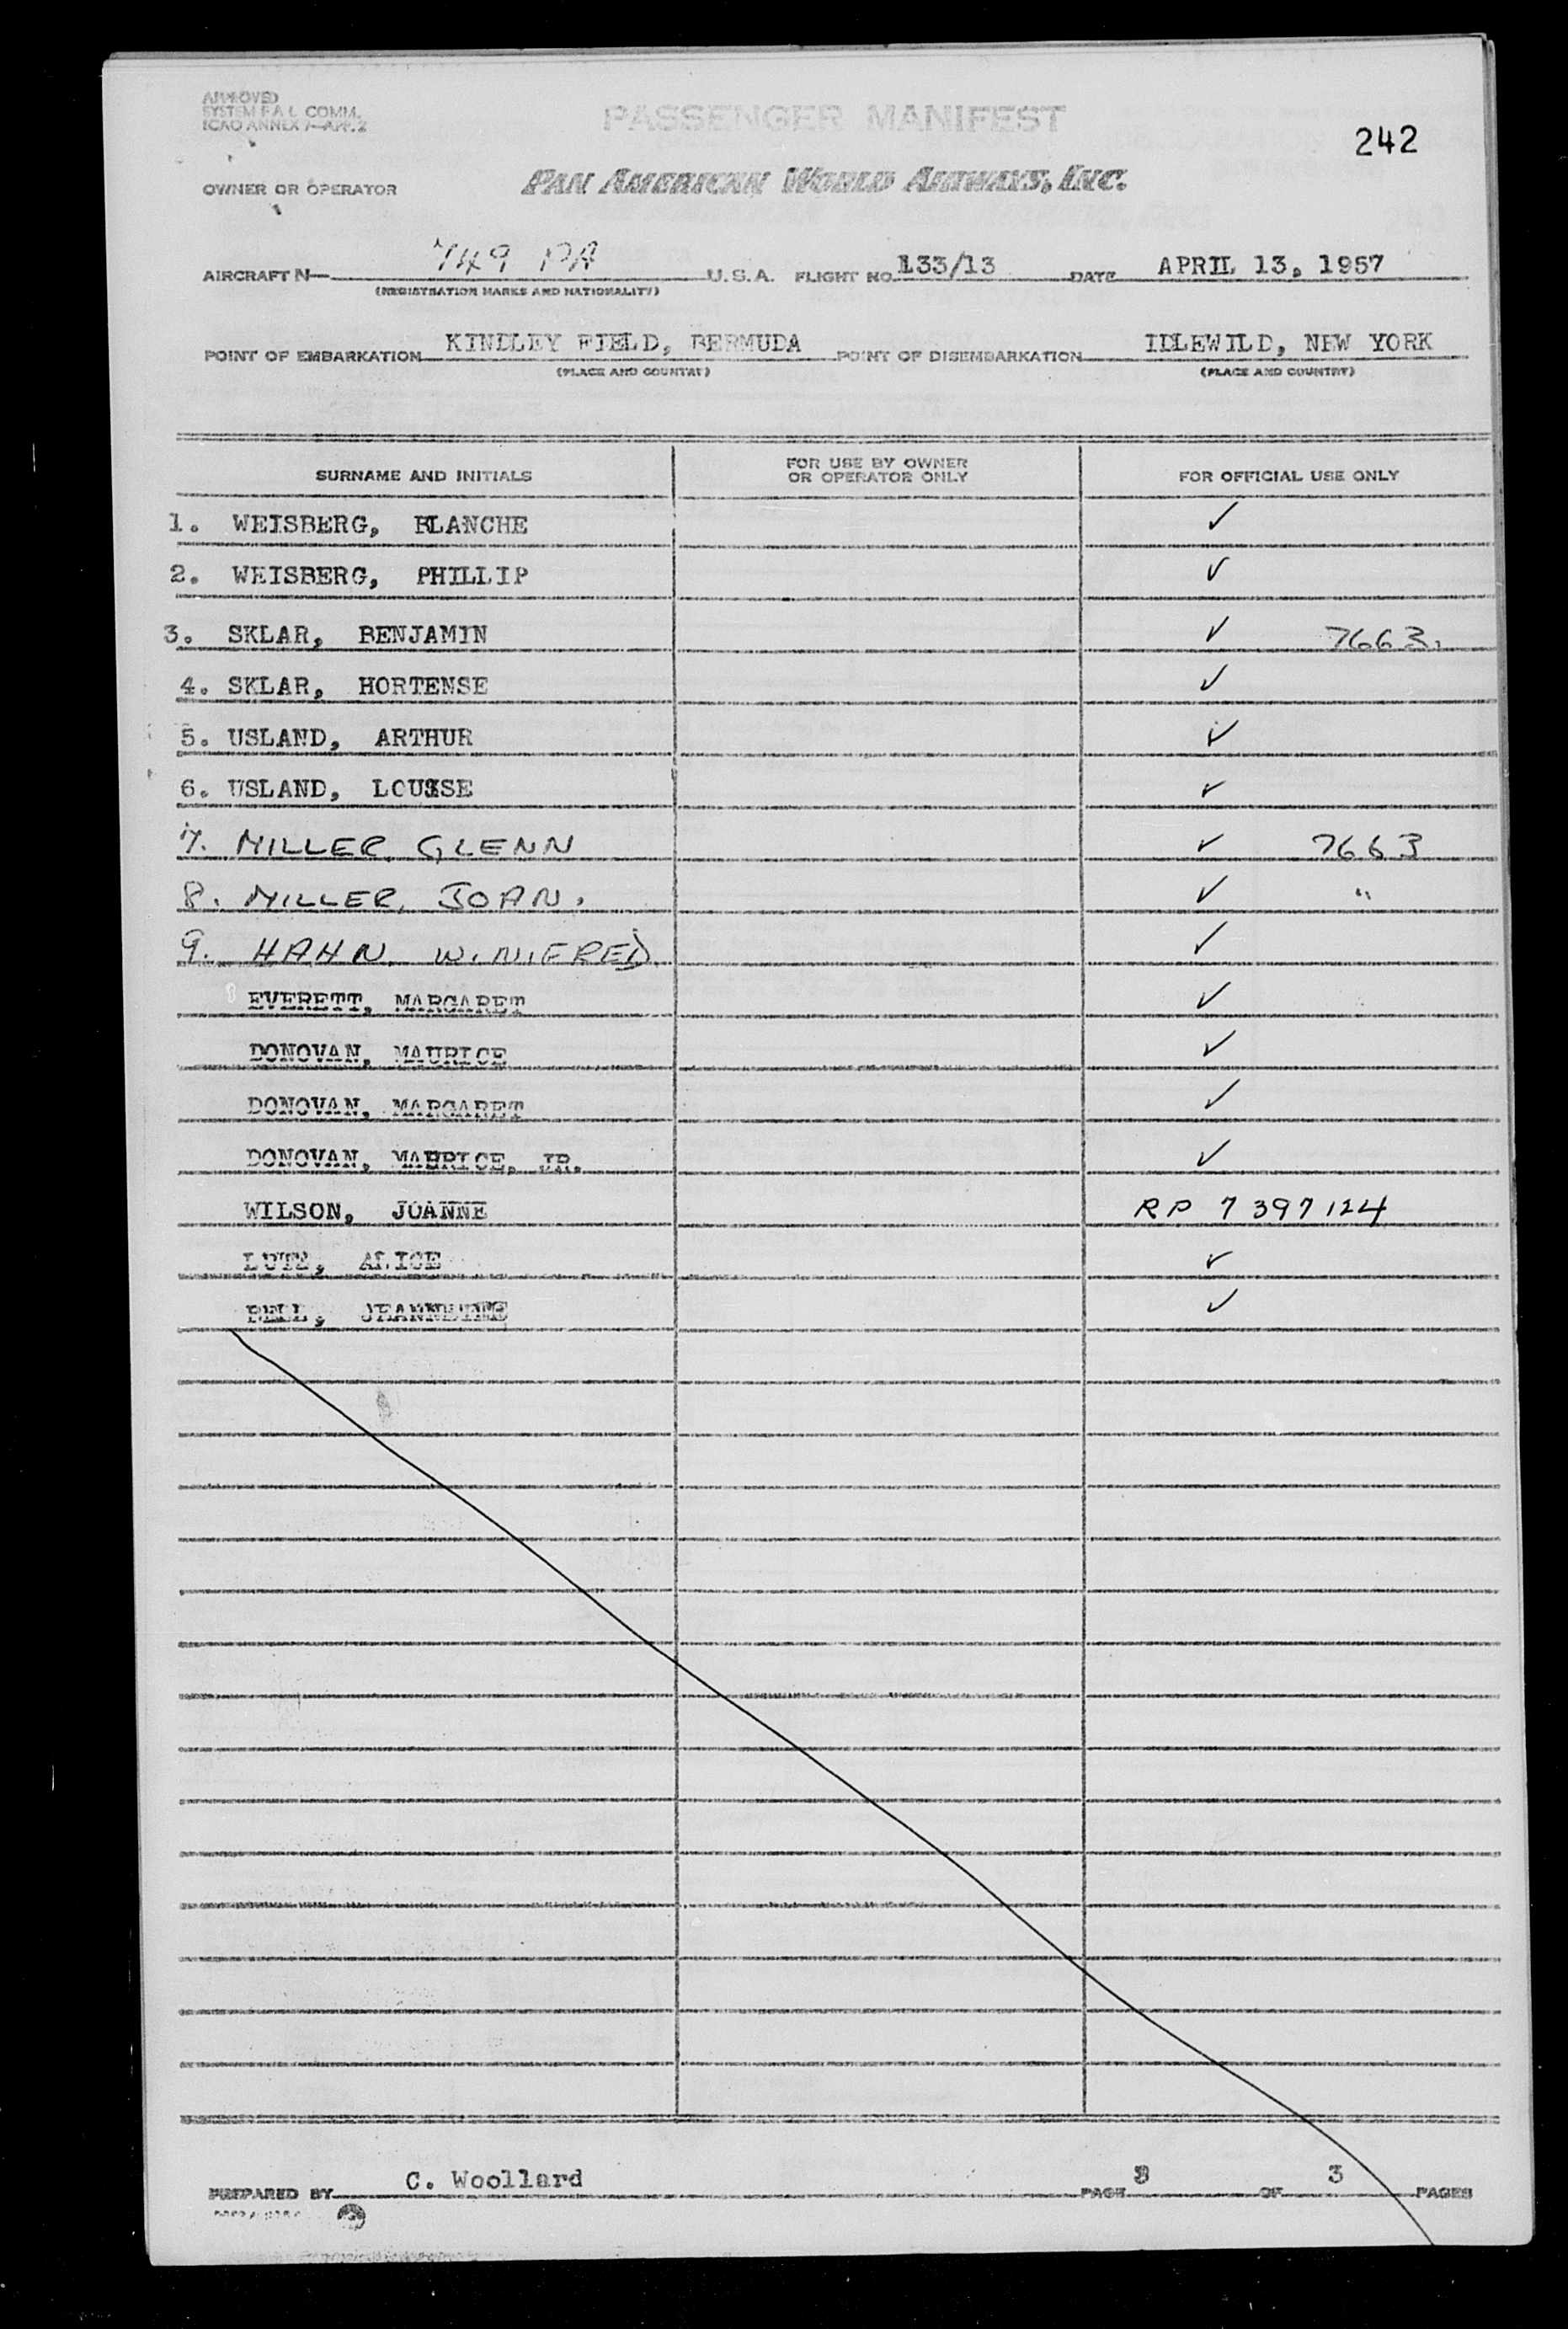 APPROVED
SYSTEM F.A.L. COMM.
ICAO ANNEX 7—APP. 2
PASSENGER MANIFEST
242
OWNER OR OPERATOR PAN AMERICAN WORLD AIRWAYS, INC.
AIRCRAFT N— 749 PA U.S.A. FLIGHT NO. 133/13 DATE APRIL 13, 1957
(REGISTRATION MARKS AND NATIONALITY)
POINT OF EMBARKATION KINDLEY FIELD, BERMUDA POINT OF DISEMBARKATION IDLEWILD, NEW YORK
(PLACE AND COUNTRY) (PLACE AND COUNTRY)
SURNAME AND INITIALS FOR USE BY OWNER OR OPERATOR ONLY FOR OFFICIAL USE ONLY
1. WEISBERG, BLANCHE ✓
2. WEISBERG, PHILLIP ✓
3. SKLAR, BENJAMIN ✓ 7663.
4. SKLAR, HORTENSE ✓
5. USLAND, ARTHUR ✓
6. USLAND, LOUISE ✓
7. MILLER, GLENN ✓ 7663
8. MILLER, JOAN. ✓ "
9. HAHN, WINIFRED ✓
EVERETT, MARGARET ✓
DONOVAN, MAURICE ✓
DONOVAN, MARGARET ✓
DONOVAN, MAURICE, JR. ✓
WILSON, JOANNE RP 7 397 124
LUTZ, ALICE ✓
BELL, ✓
PREPARED BY C. Woollard PAGE 3 OF 3 PAGES